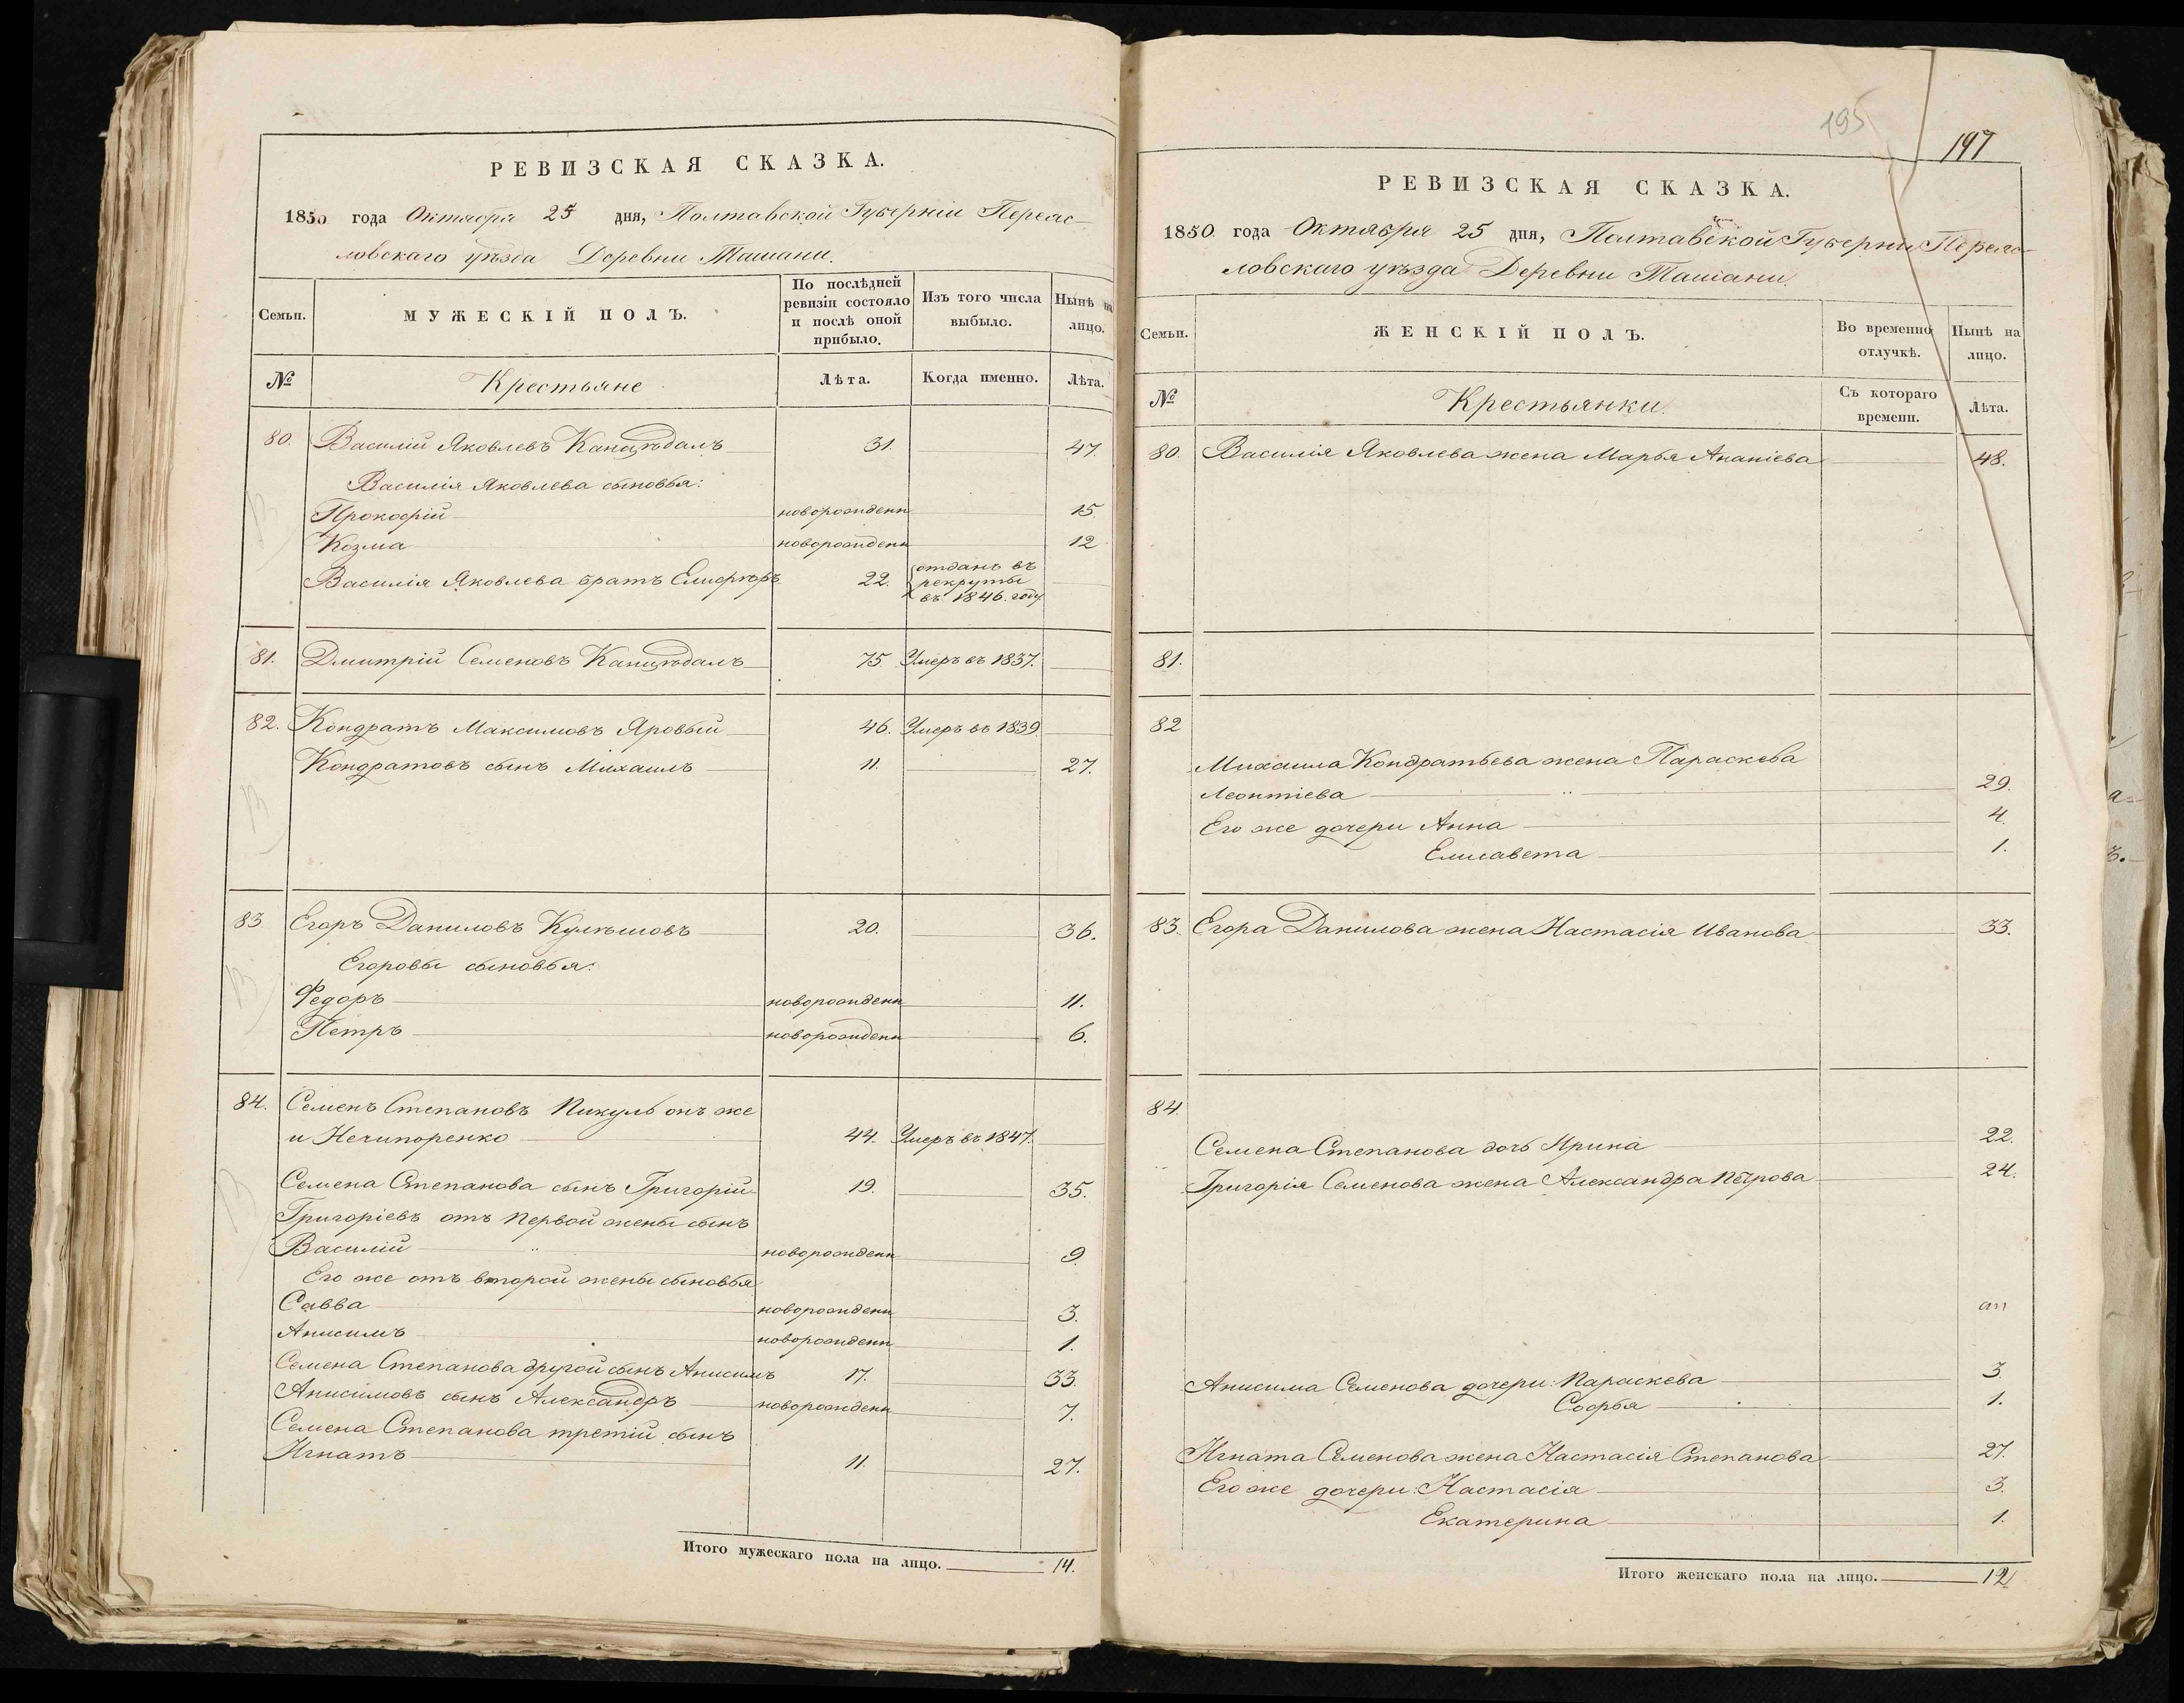 РЕВИЗСКАЯ СКАЗКА.
1850 года Октября 25 дня, Полтавской Губерніи Переяс-
ловскаго уѣзда Деревни Ташани.
Семьи.
МУЖЕСКІЙ ПОЛЪ.
По послѣдней ревизіи состояло и послѣ оной прибыло.
Изъ того числа выбыло.
Нынѣ на лицо.
№ Крестьяне Лѣта. Когда именно. Лѣта.
80. Василій Яковлевъ 31. 47.
Василія Яковлева сыновья:
Прокофій новорожден 15.
Козма новорожден 12
Василія Яковлева братъ Елисѣй 22. отданъ въ
рекруты
въ 1846. году
81. Дмитрій Семеновъ 75. Умеръ въ 1837.
82. Кондратъ Максимовъ Яровый 46. Умеръ въ 1839.
Кондратовъ сынъ Михаилъ 11. 27.
83 Егоръ Даниловъ Кулѣшовъ 20. 36.
Егоровы сыновья:
Федоръ новорожден 11.
Петръ новорожден 6.
84. Семенъ Степановъ Пикуль онъ же
и Нечипоренко 44. Умеръ въ 1847.
Семена Степанова сынъ Григорій 19. 35.
Григоріевъ отъ первой жены сынъ
Василій новорожден 9.
Его же отъ второй жены сыновья
Савва новорожден 3.
Анисимъ новорожден 1.
Семена Степанова другой сынъ Анисимъ 17. 33.
Анисимовъ сынъ Александръ новорожден 7.
Семена Степанова третій сынъ
Игнатъ 11. 27.
Итого мужескаго пола на лицо. 14.
195
197
РЕВИЗСКАЯ СКАЗКА.
1850 года Октября 25 дня, Полтавской Губерніи Переяс-
ловскаго уѣзда Деревни Ташани.
Семьи.
ЖЕНСКІЙ ПОЛЪ.
Во временно отлучкѣ.
Нынѣ на лицо.
№ Крестьянки. Съ котораго времени. Лѣта.
80. Василія Яковлева жена Марья Ананіева 48.
81.
82
Михаила Кондратьева жена Параскева
Леонтіева 29.
Его же дочери Анна 4.
Елисавета 1.
83. Егора Данилова жена Настасія Иванова 33.
84.
Семена Степанова дочь Ирина 22.
Григорія Семенова жена Александра Петрова 24.
Анисима Семенова дочери: Параскева 3
Софья 1.
Игната Семенова жена Настасія Степанова 27.
Его же дочери: Настасія 3.
Екатерина 1.
Итого женскаго пола на лицо. 12